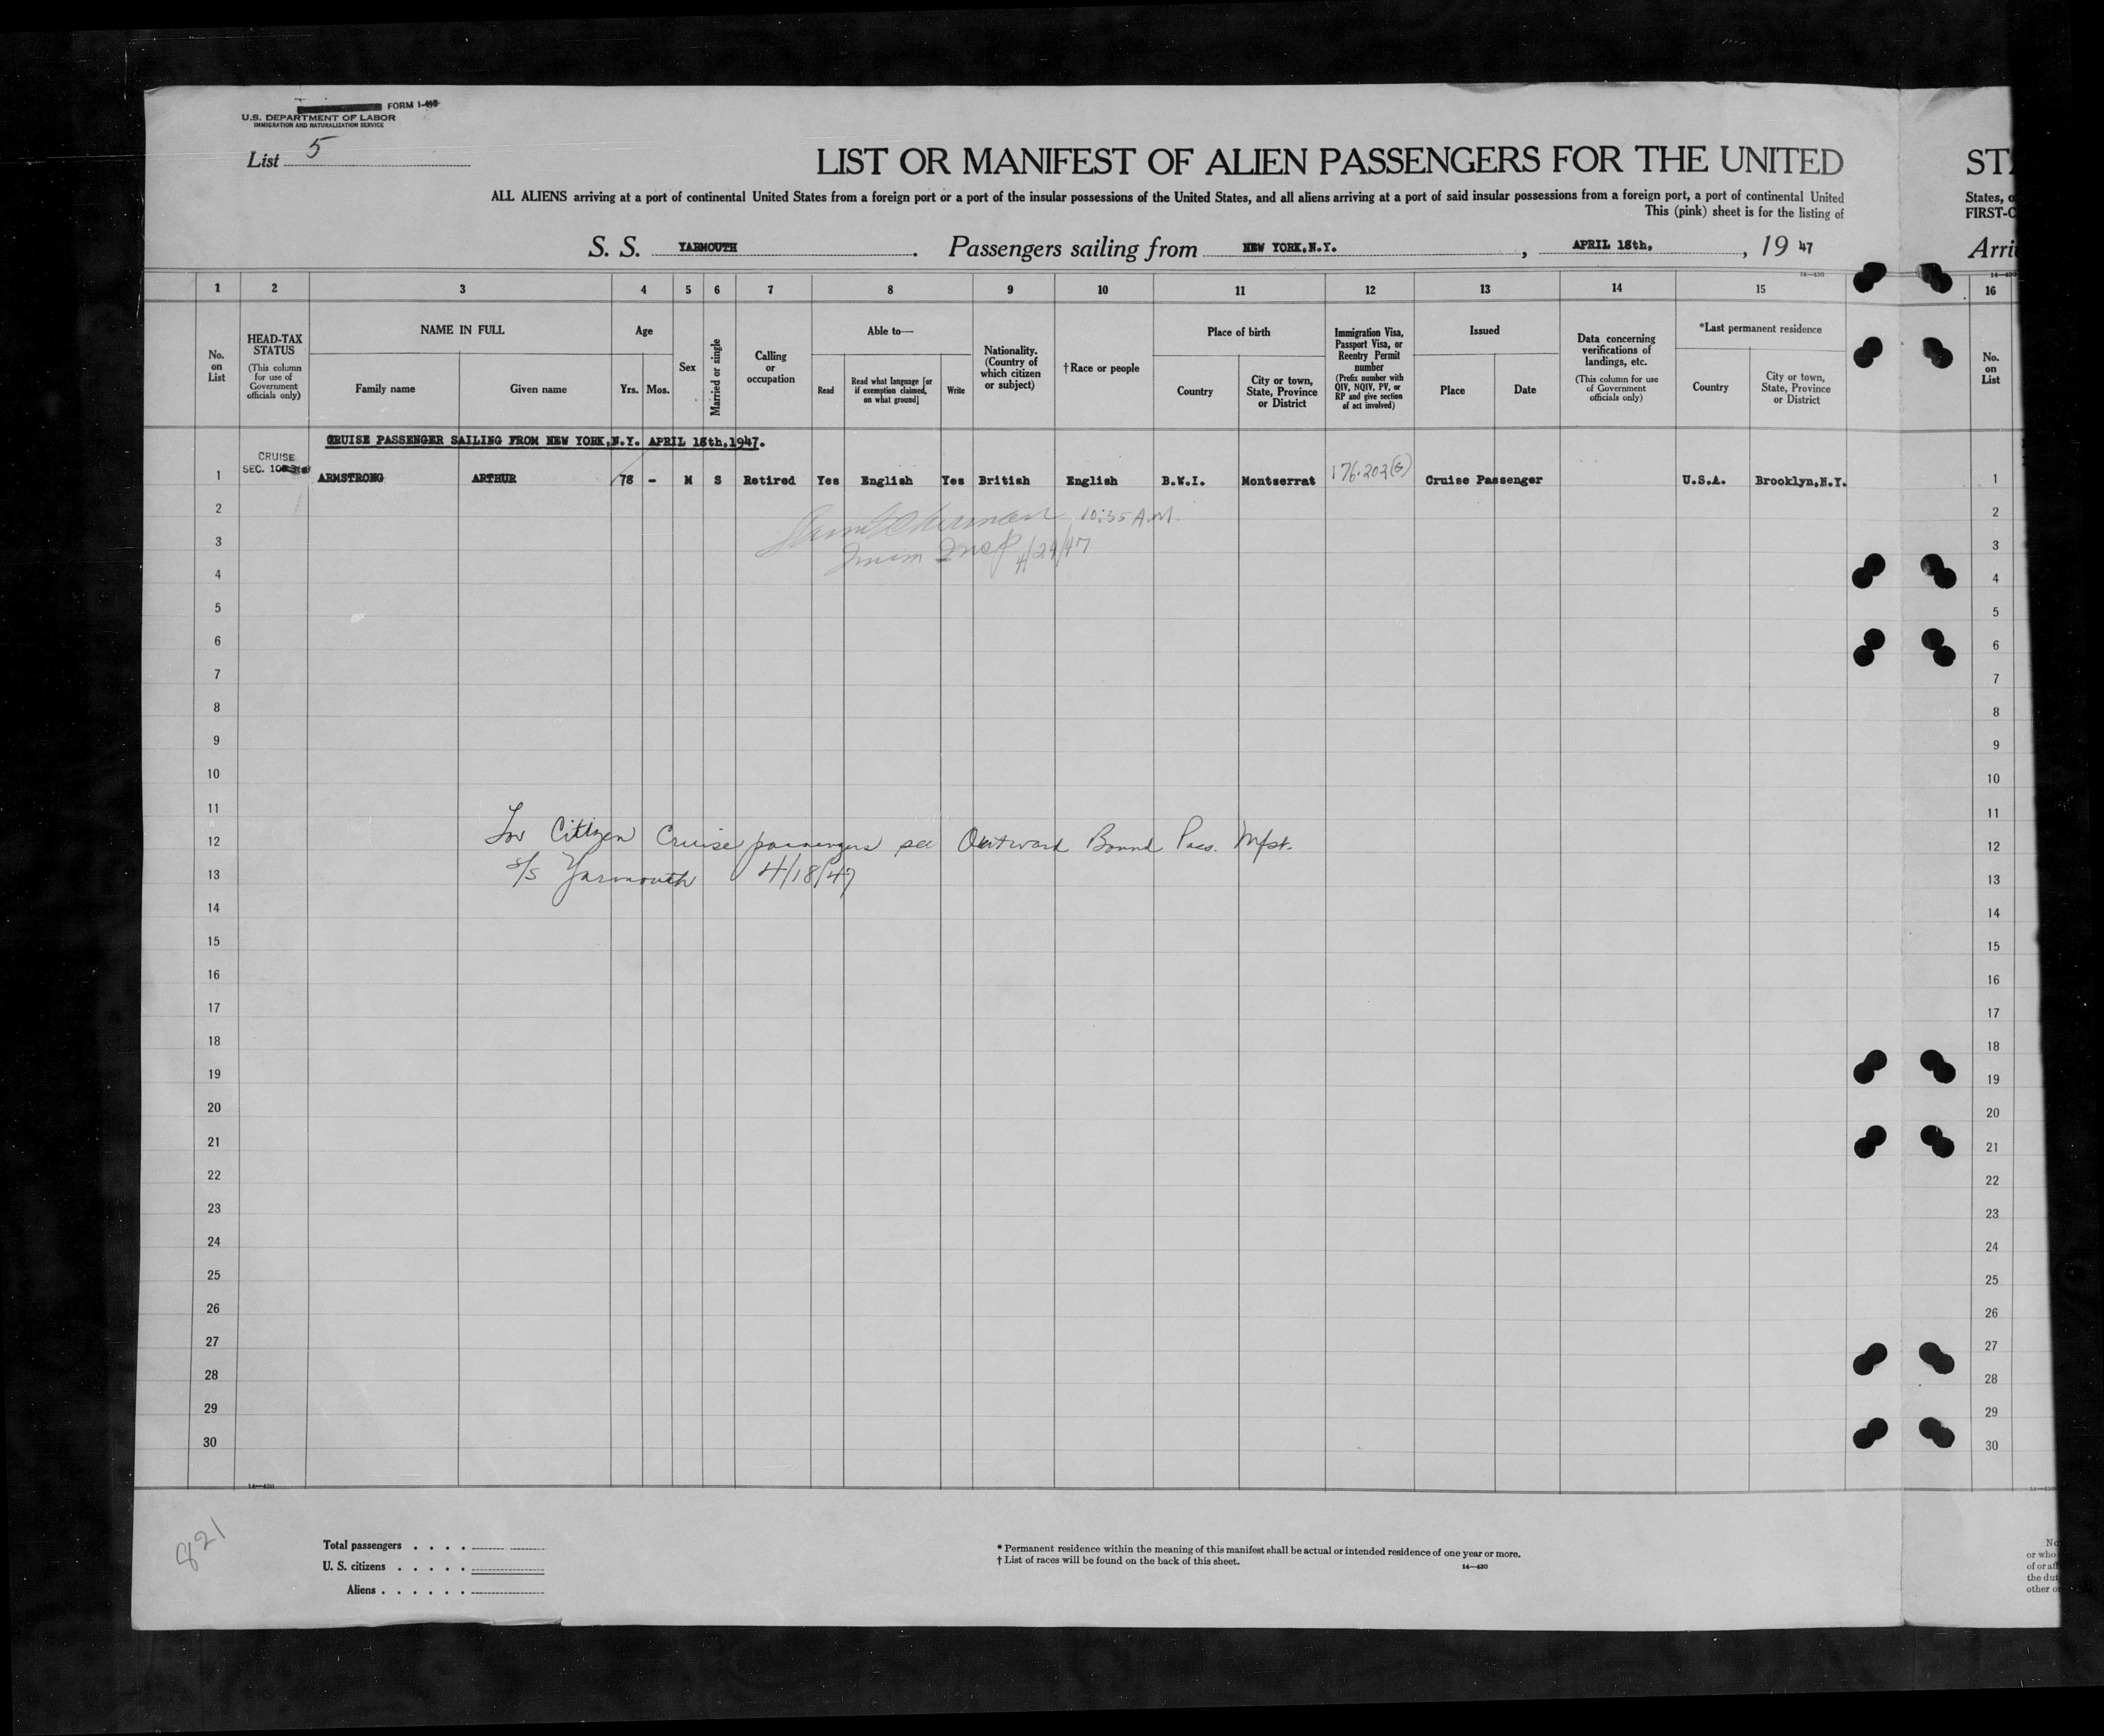 FORM I-
U.S. DEPARTMENT OF LABOR
IMMIGRATION AND NATURALIZATION SERVICE
List 5
LIST OR MANIFEST OF ALIEN PASSENGERS FOR THE UNITED
ALL ALIENS arriving at a port of continental United States from a foreign port or a port of the insular possessions of the United States, and all aliens arriving at a port of said insular possessions from a foreign port, a port of continental United
This (pink) sheet is for the listing of
S. S. YARMOUTH. Passengers sailing from NEW YORK,N.Y., APRIL 18th, , 19 47
14—430
1 2 3 4 5 6 7 8 9 10 11 12 13 14 15
No. on List
HEAD-TAX STATUS
(This column for use of Government officials only)
NAME IN FULL
Family name
Given name
Age
Yrs. Mos.
Sex
Married or single
Calling or occupation
Able to—
Read
Read what language [or if exemption claimed, on what ground]
Write
Nationality. (Country of which citizen or subject)
†Race or people
Place of birth
Country
City or town, State, Province or District
Immigration Visa, Passport Visa, or Reentry Permit number
(Prefix number with QIV, NQIV, PV, or RP and give section of act involved)
Issued
Place
Date
Data concerning verifications of landings, etc.
(This column for use of Government officials only)
*Last permanent residence
Country
City or town, State, Province or District
CRUISE PASSENGER SAILING FROM NEW YORK,N.Y. APRIL 18th,1947.
CRUISE
SEC. 
1 ARMSTRONG ARTHUR 78 - M S Retired Yes English Yes British English B.W.I. Montserrat 176.202(G) Cruise Passenger U.S.A. Brooklyn,N.Y.
2 10:35 A.M.
3 Imm Insp 4/24/47
4
5
6
7
8
9
10
11
12 For Citizen Cruise passengers see Outward Bound Pass. Mfst.
13 s/s Yarmouth 4/18/47
14
15
16
17
18
19
20
21
22
23
24
25
26
27
28
29
30
14—430
821
Total passengers . . . .
U. S. citizens . . . . .
Aliens . . . . . .
* Permanent residence within the meaning of this manifest shall be actual or intended residence of one year or more.
† List of races will be found on the back of this sheet.
14—430
ST
States, o
FIRST-C
Arri
14—430
16
No. on List
1
2
3
4
5
6
7
8
9
10
11
12
13
14
15
16
17
18
19
20
21
22
23
24
25
26
27
28
29
30
14—430
No
or who
of or aff
the dut
other o